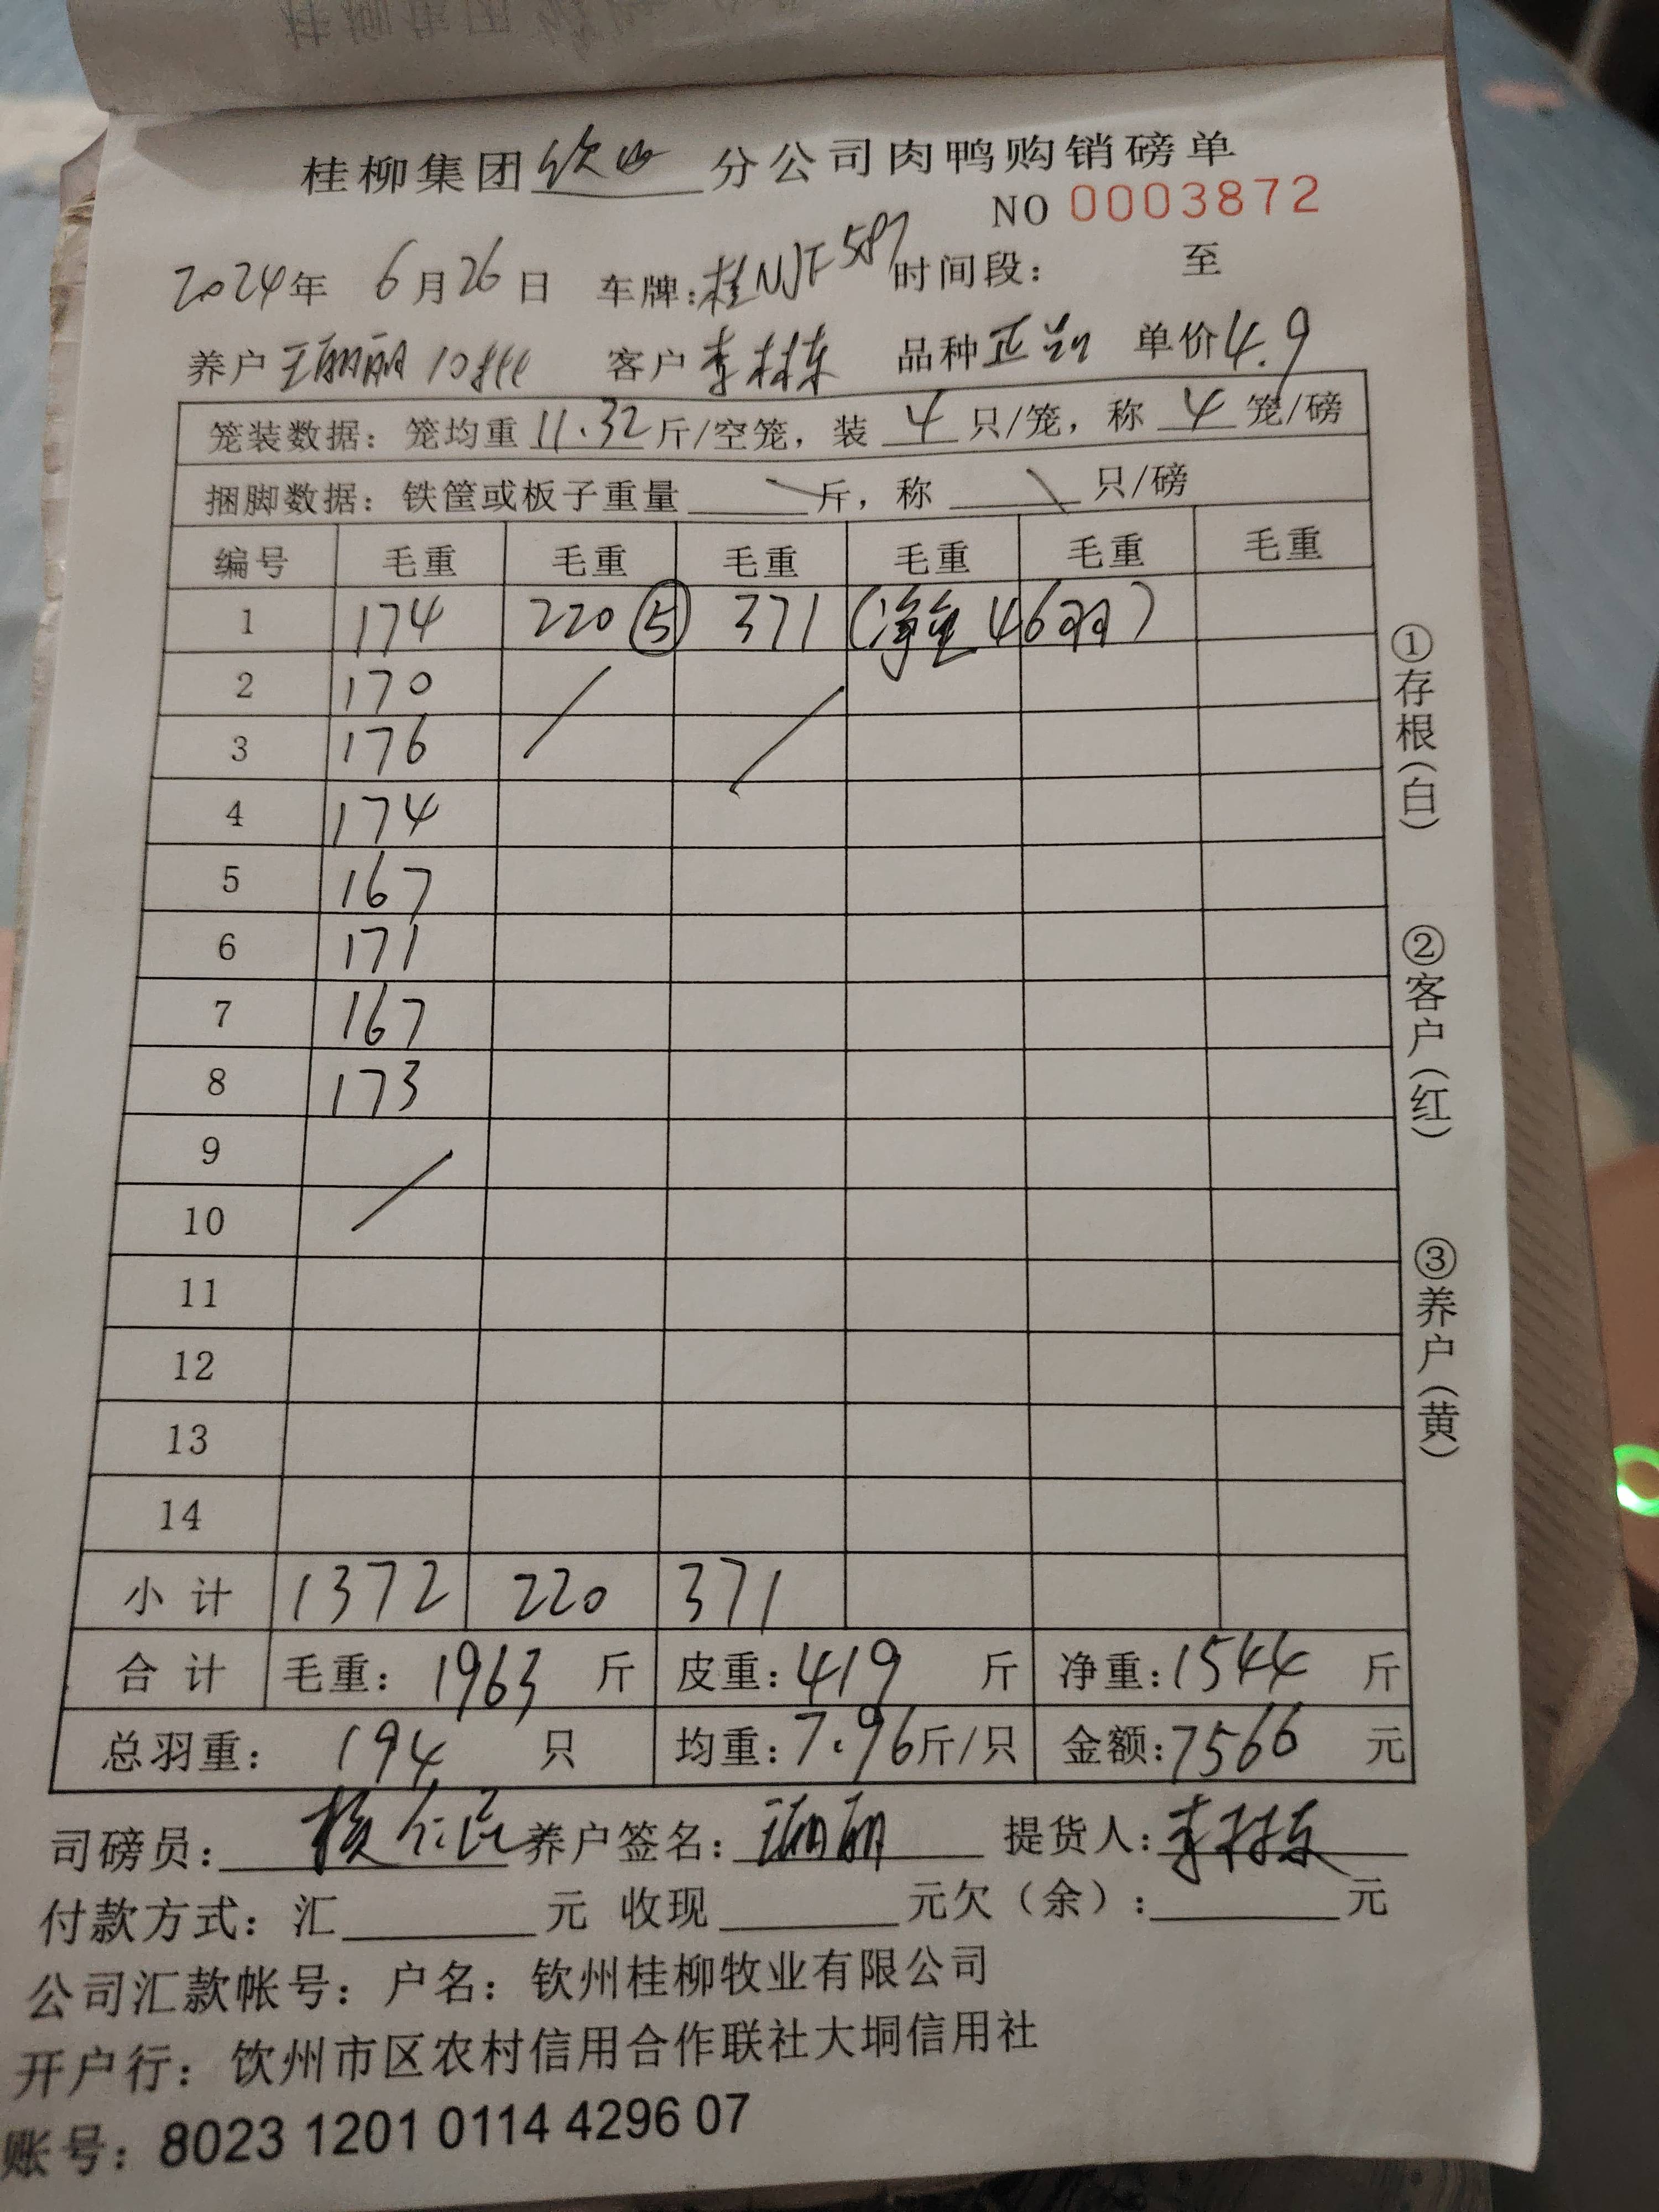 桂柳集团 钦州 分公司肉鸭购销磅单
NO 0003872
2024年 6月26日 车牌:桂NJF587 时间段: 至
养户 王丽丽 10 客户 李林东 品种 正 单价4.9
笼装数据:笼均重 11.32 斤/空笼,装 4 只/笼,称 4 笼/磅
捆脚数据:铁筐或板子重量 \ 斤,称 \ 只/磅
编号 毛重 毛重 毛重 毛重 毛重 毛重
1 174 220 ⑤ 371 (净重 46羽)
2 170 /
3 176 /
4 174
5 167
6 171
7 167
8 173
9 /
10
11
12
13
14
小计 1372 220 371
合计 毛重:1963 斤 皮重:419 斤 净重:1544 斤
总羽重: 194 只 均重:7.96斤/只 金额:7566 元
司磅员: 养户签名: 丽丽 提货人:李林东
付款方式:汇 元 收现 元欠(余): 元
公司汇款帐号:户名:钦州桂柳牧业有限公司
开户行:饮州市区农村信用合作联社大垌信用社
账号:8023 1201 0114 4296 07
①存根(白)
②客户(红)
③养户(黄)